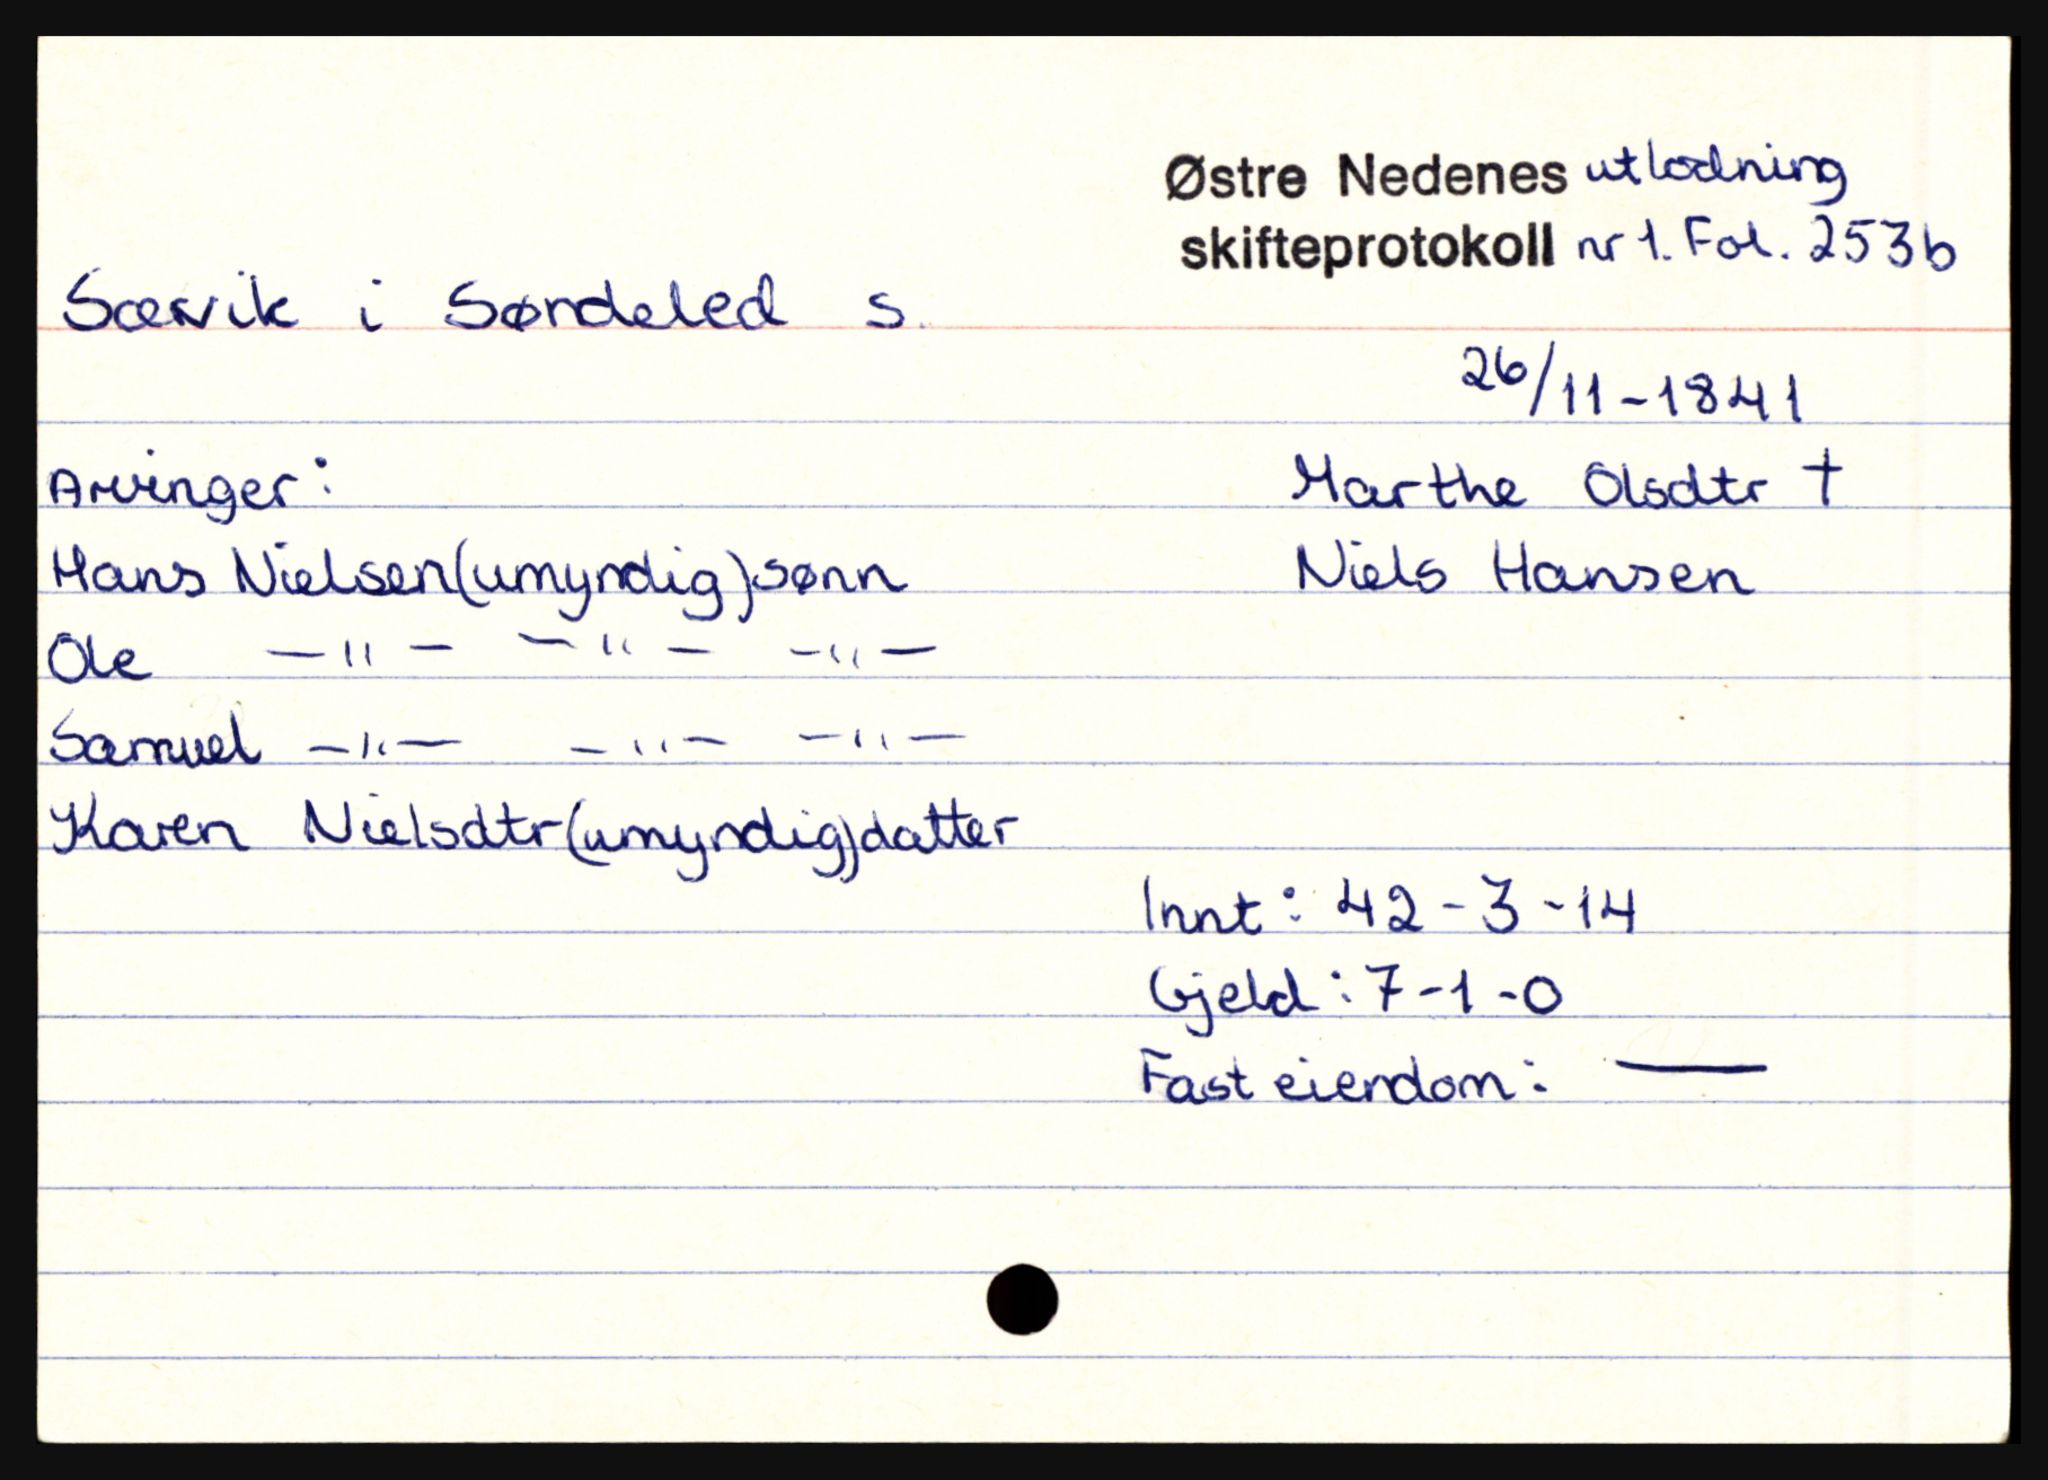 Østre Nedenes utlodning
skifteprotokoll nr 1. Fol. 253b
Sævik i Søndeled s.
26/11-1841
Arvinger:
Marthe Olsdtr †
Hans Nielsen (umyndig) sønn
Niels Hansen
Ole —"— —"— —"—
Samuel —"— —"— —"—
Karen Nielsdtr (umyndig) datter
Innt: 42-3-14
Gjeld: 7-1-0
Fast eiendom: —